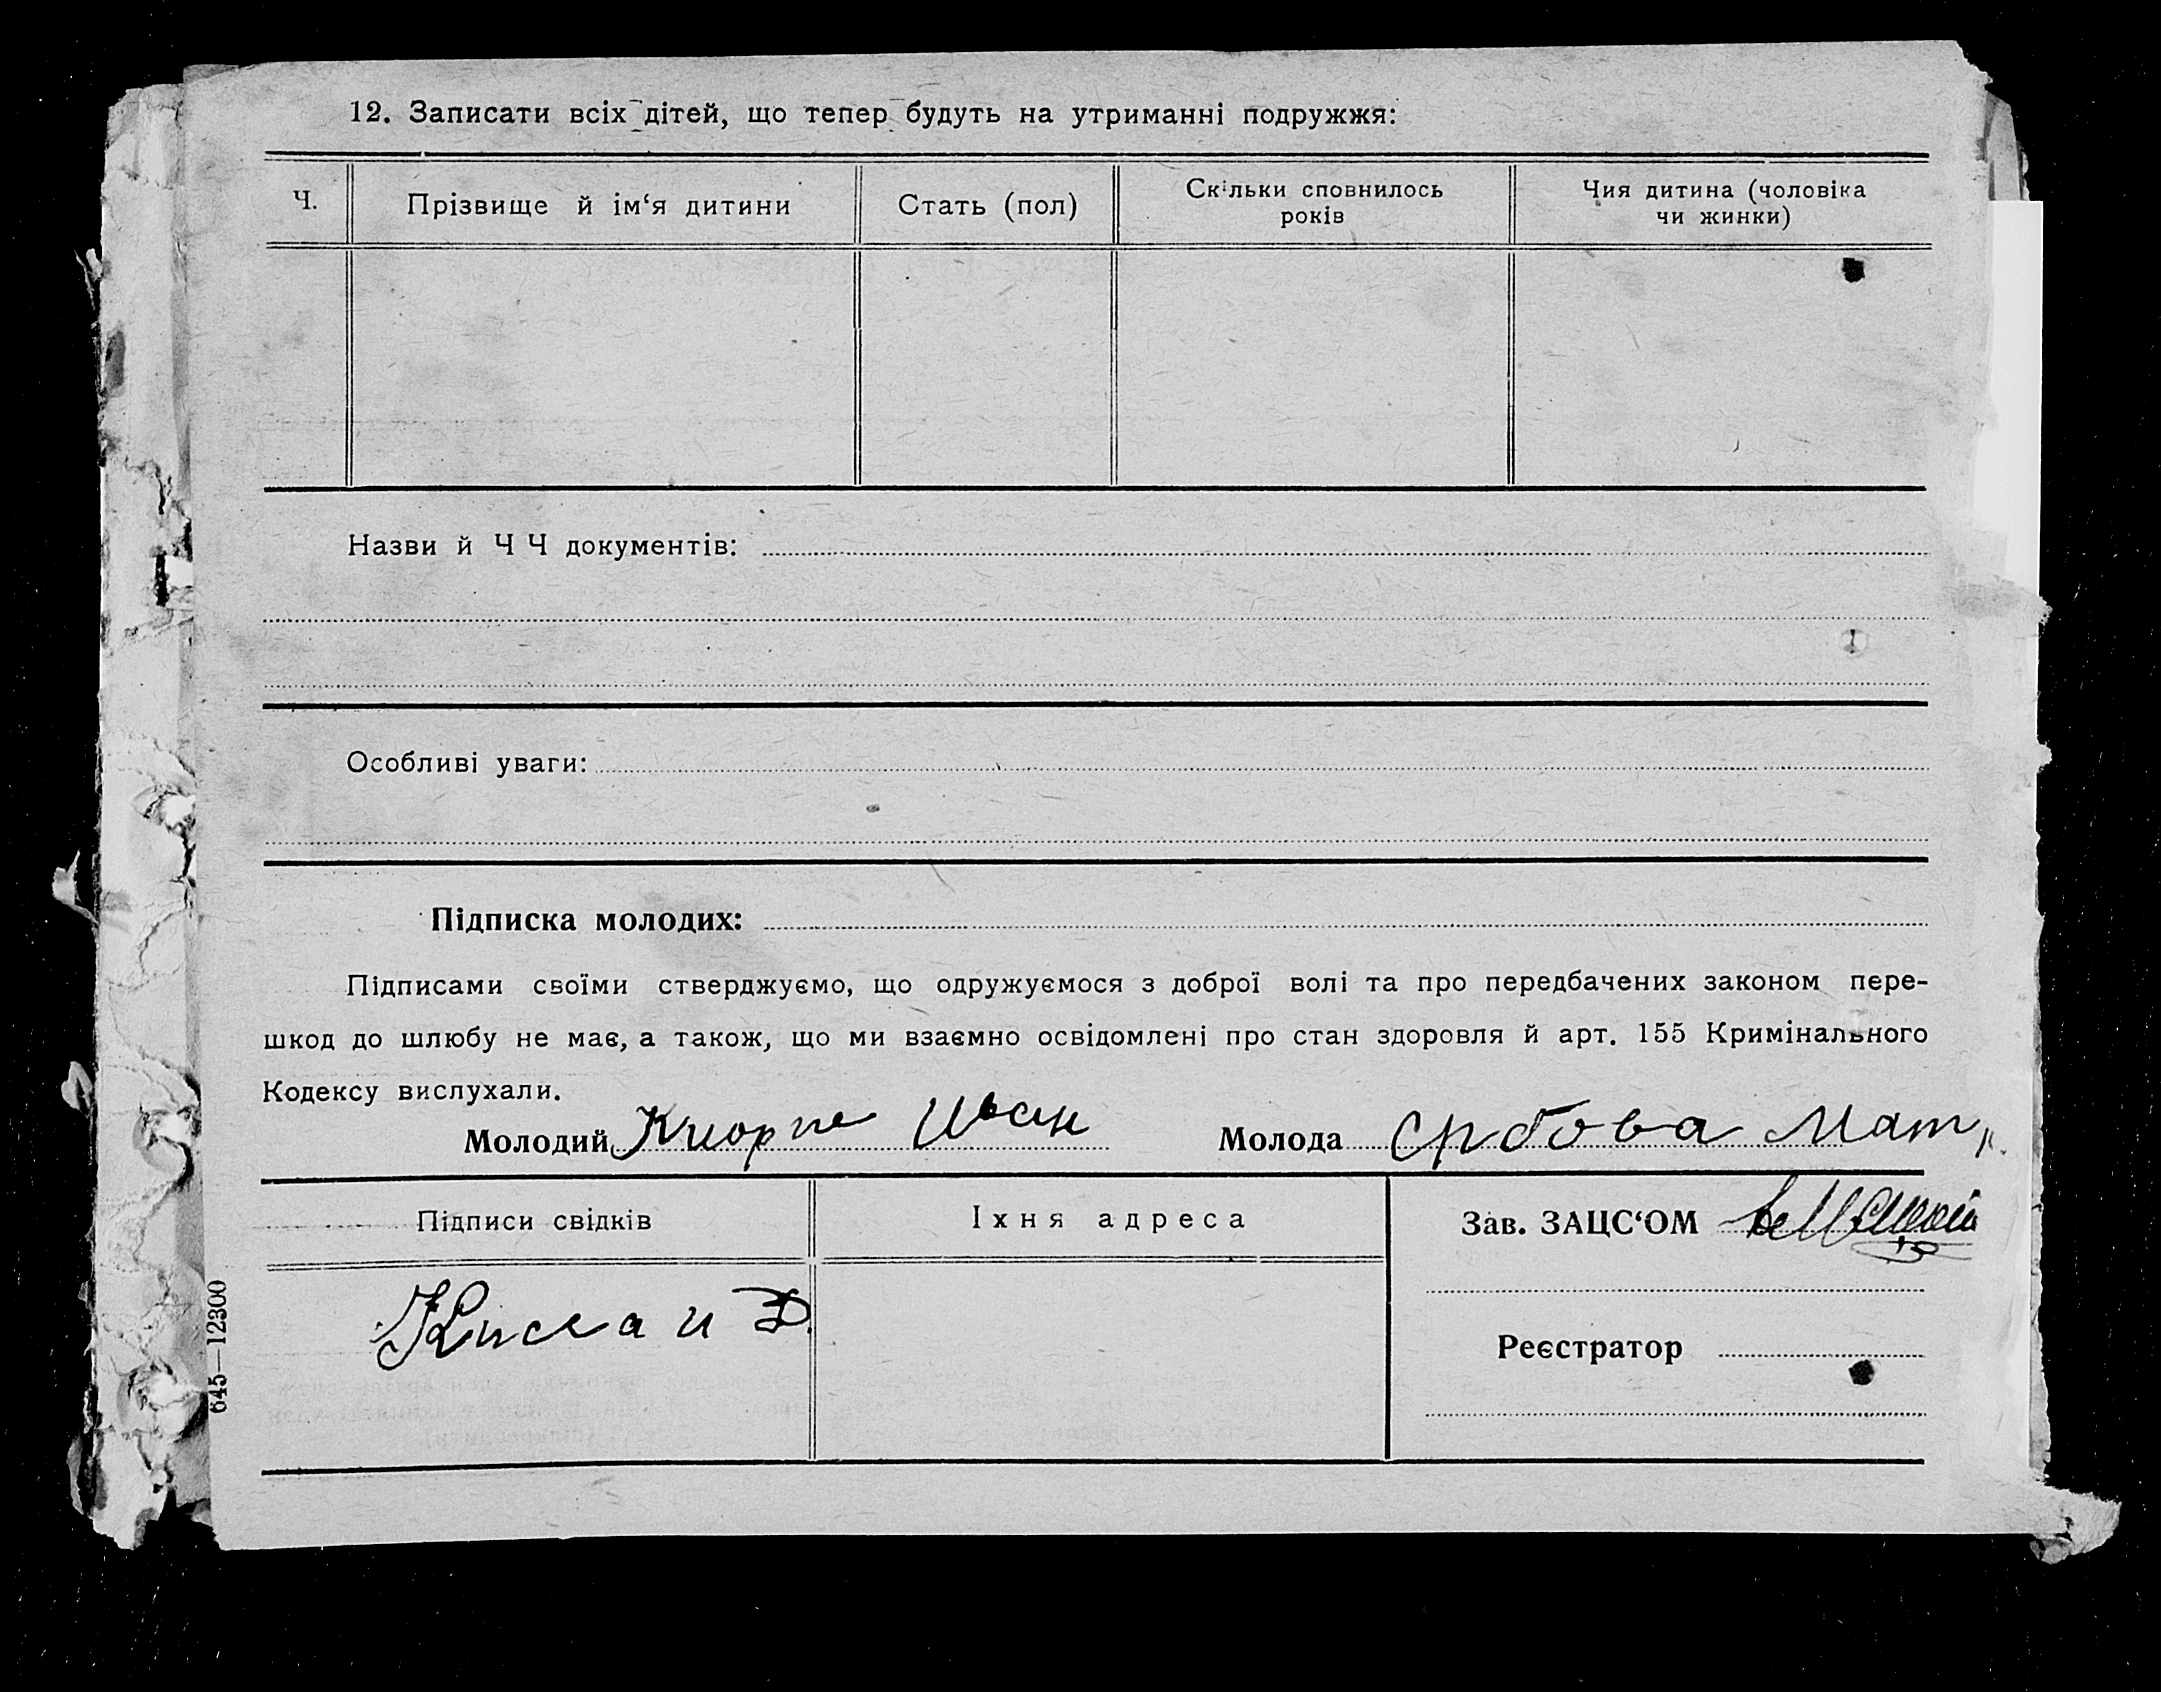 12. Записати всіх дітей, що тепер будуть на утриманні подружжя:
Ч.
Прізвище й ім‘я дитини
Стать (пол)
Скільки сповнилось років
Чия дитина (чоловіка чи жинки)
Назви й ЧЧ документів:
Особливі уваги:
Підписка молодих:
Підписами своїми стверджуємо, що одружуємося з доброї волі та про передбачених законом пере-
шкод до шлюбу не має, а також, що ми взаємно освідомлені про стан здоровля й арт. 155 Кримінального
Кодексу вислухали.
Молодий Иван
Молода Србова Матр.
Підписи свідків
Їхня адреса
Зав. ЗАЦС‘ОМ
Реєстратор
645—12300